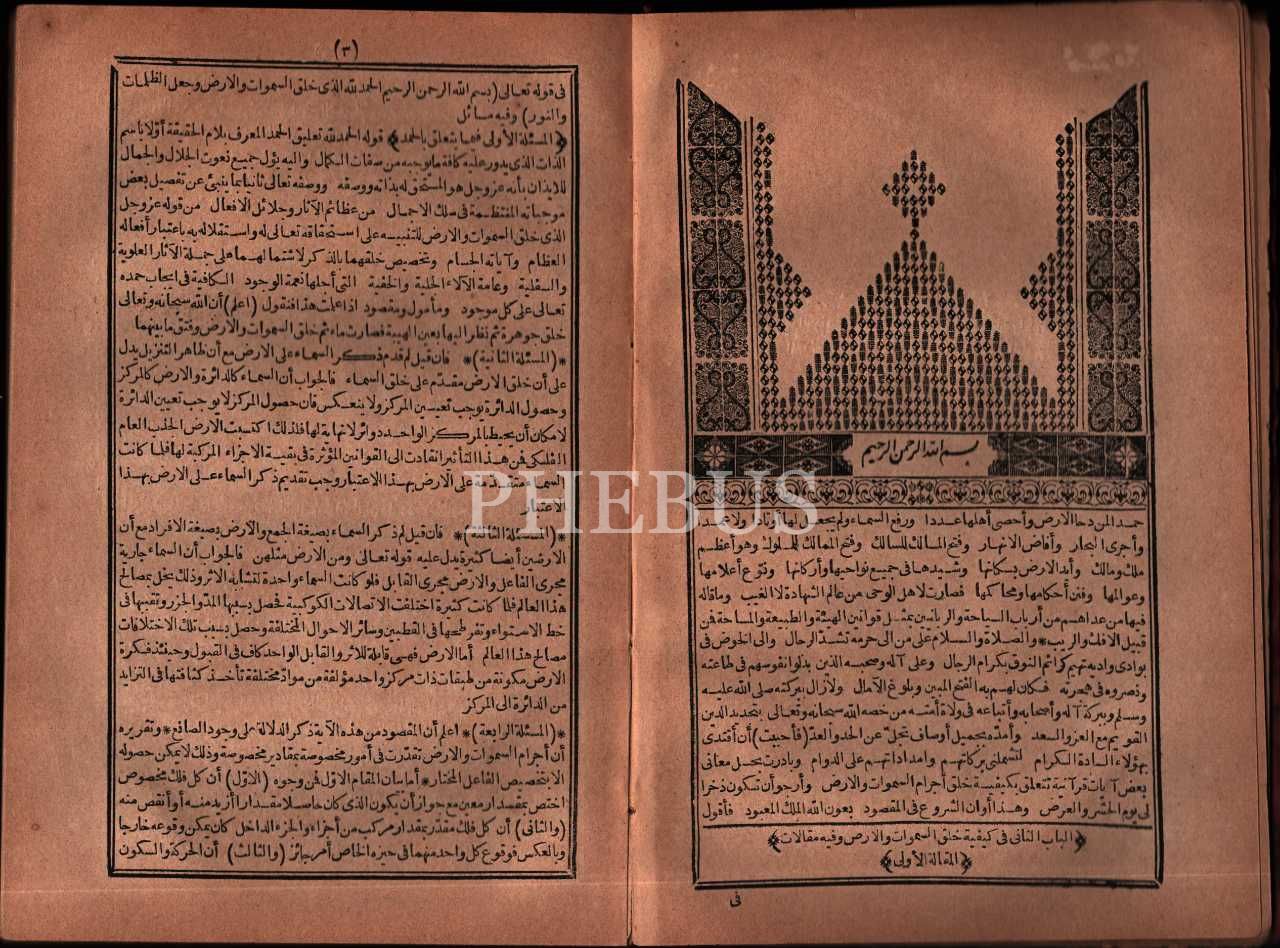 بسم الله الرحمن الرحيم
حمدا لمن دحا الارض وأحصى أهلها عددا ورفع السماء ولم يجعل لها أوتادا ولا عمدا
وأجرى البحار وأفاض الانهار وفتح المسالك للسالك وفتح الممالك للملوك وهو أعظم
ملك ومالك وأيد الارض بسكانها وشيدها فى جميع نواحيها وأركانها ونوع أعلامها
وعوالمها وفنن أحكامها ومحاكمها فصارت لاهل الوحى من عالم الشهادة لا الغيب وما قاله
فيها من عداهم من أرباب السياحة والرياضة بمثل قوانين الهيئة والطبيعة والمساحة فن
قبيل الافك والريب * والصلاة والسلام على من الى حرمه تشد الرحال والى الخوض فى
بوادى واديه تهيم كرائم النوق بكرام الرجال وعلى آله وصحبه الذين بذلوا نفوسهم فى طاعته
ونصروه فى هجرته فكان لهم به الفتح المبين وبلوغ الآمال ولازال ببركته صلى الله عليه
وسلم وببركة آله وأصحابه وأتباعه فى ولاة أمته من خصه الله سبحانه وتعالى بتجديد الدين
القويم مع العز والسعد وأمده بجميل أوصاف تجل عن الحد والعد (فأحببت) أن أقتدى
بهؤلاء السادة الكرام لتشملنى بركاتهم وامداداتهم على الدوام وبادرت بحل معانى
بعض آيات قرآنية تتعلق بكيفية خلق أجرام السموات والارض وأرجو أن تكون ذخرا
لى يوم الحشر والعرض وهذا أوان الشروع فى المقصود بعون الله الملك المعبود فأقول
﴿الباب الثانى فى كيفية خلق السموات والارض وفيه مقالات﴾
﴿المقالة الأولى﴾
فى
(٣)
فى قوله تعالى (بسم الله الرحمن الرحيم الحمد لله الذى خلق السموات والارض وجعل الظلمات
والنور) وفيه مسائل
﴿المسئلة الأولى فيما يتعلق بالحمد﴾ قوله الحمد لله تعليق الحمد المعرف بلام الحقيقة أولا باسم
الذات الذى يدور عليه كافة ما يوجبه من صفات الكمال واليه يؤل جميع نعوت الجلال والجمال
للايذان بأنه عز وجل هو المستحق له بذاته ووصفه ووصفه تعالى ثانيا بما ينبئ عن تفصيل بعض
موجباته المنتظمة فى سلك الاجمال من عظائم الآثار وجلائل الافعال من قوله عز وجل
الذى خلق السموات والارض للتنبيه على استحقاقه تعالى له واستقلاله به باعتبار أفعاله
العظام وآياته الجسام وتخصيص خلقهما بالذكر لاشتمالهما على جملة الآثار العلوية
والسفلية وعامة الآلاء الجلية والخفية التى أجلها نعمة الوجود الكافية فى ايجاب حمده
تعالى على كل موجود ومأمول ومقصود اذا علمت هذا فنقول (اعلم) أن الله سبحانه وتعالى
خلق جوهرة ثم نظر اليها بعين الهيبة فصارت ماء ثم خلق السموات والارض وفتق ما بينهما
*(المسئلة الثانية)* فان قيل لم قدم ذكر السماء على الارض مع أن ظاهر التنزيل يدل
على أن خلق الارض مقدم على خلق السماء فالجواب أن السماء كالدائرة والارض كالمركز
وحصول الدائرة يوجب تعيين المركز ولا ينعكس فان حصول المركز لا يوجب تعيين الدائرة
لامكان أن يحيط بالمركز الواحد دوائر لا نهاية لها فلذلك اكتسبت الارض الجذب العام
الفلكى فن هذا التأثير انقادت الى القوانين المؤثرة فى بقية الاجزاء المركبة لها فلما كانت
السماء متقدمة على الارض بهذا الاعتبار وجب تقديم ذكر السماء على الارض بهذا
الاعتبار
*(المسئلة الثالثة)* فان قيل لم ذكر السماء بصيغة الجمع والارض بصيغة الافراد مع أن
الارضين أيضا كثيرة يدل عليه قوله تعالى ومن الارض مثلهن فالجواب أن السماء جارية
مجرى الفاعل والارض مجرى القابل فلو كانت السماء واحدة لتشابه الاثر وذلك يخل بمصالح
هذا العالم فلما كانت كثيرة اختلفت الاتصالات الكوكبية فحصل بسببها المد والجزر ونقبها فى
خط الاستواء وتفرطحها فى القطبين وسائر الاحوال المختلفة وحصل بسبب تلك الاختلافات
مصالح هذا العالم أما الارض فهى قابلة للاثر والقابل الواحد كاف فى القبول وحينئذ فكرة
الارض مكونة من طبقات ذات مركز واحد مؤلفة من مواد مختلفة تأخذ كثافتها فى التزايد
من الدائرة الى المركز
*(المسئلة الرابعة)* اعلم أن المقصود من هذه الآية ذكر الدلالة على وجود الصانع * وتقريره
أن أجرام السموات والارض تقدرت فى أمور مخصوصة بمقادير مخصوصة وذلك لا يمكن حصوله
الا بتخصيص الفاعل المختار * أما بيان المقام الاول فمن وجوه (الاول) أن كل فلك مخصوص
اختص بمقدار معين مع جواز أن يكون الذى كان حاصلا مقدارا أزيد منه أو أنقص منه
(والثانى) أن كل فلك مقدر بمقدار مركب من أجزاء والجزء الداخل كان يمكن وقوعه خارجا
وبالعكس فوقوع كل واحد منهما فى حيزه الخاص أمر جائز (والثالث) أن الحركة والسكون
PHEBUS